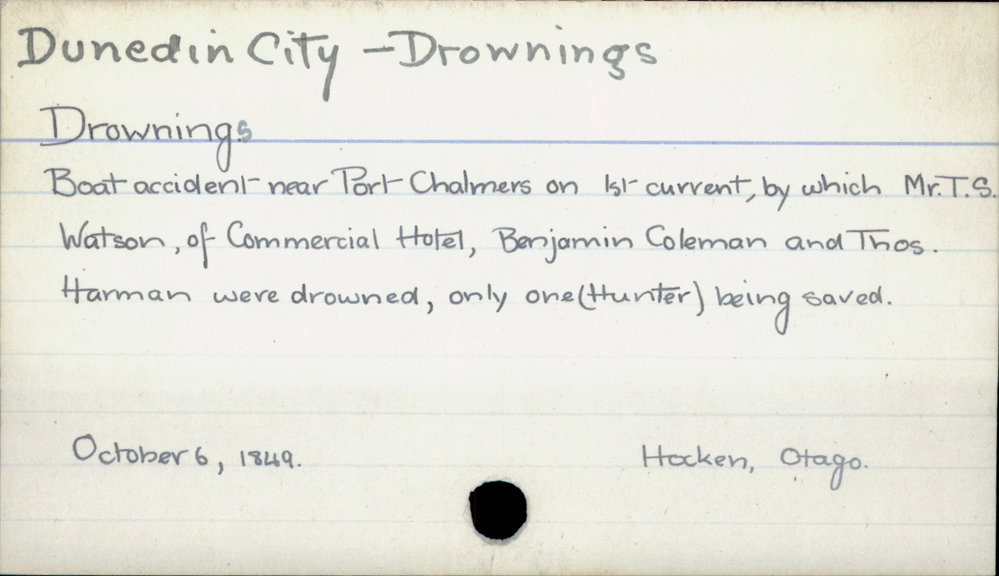 Dunedin City - Drownings
Drownings
Boat accident near Port Chalmers on 1st current, by which Mr. T. S.
Watson, of Commercial Hotel, Benjamin Coleman and Thos.
Harman were drowned, only one (Hunter) being saved.
October 6, 1849.
Hocken, Otago.